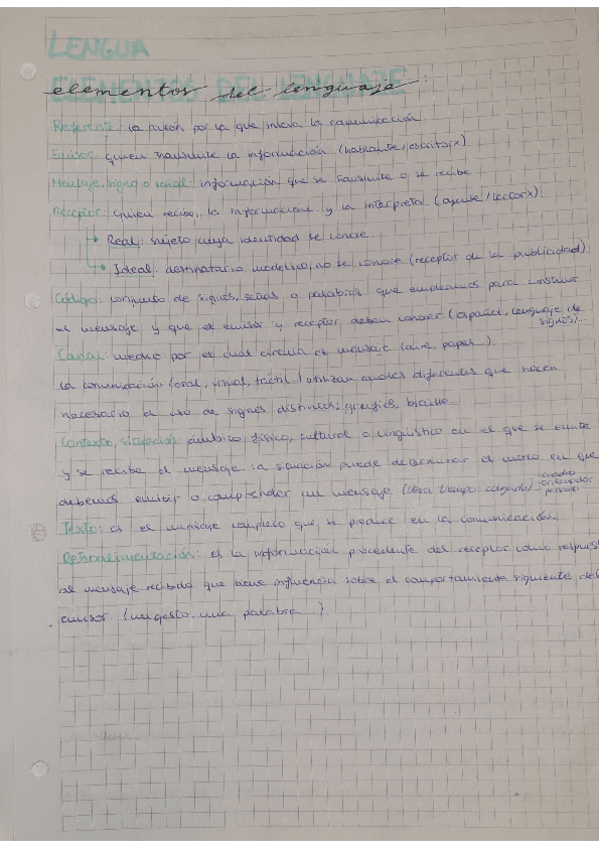 LENGUA
ELEMENTOS DEL LENGUAJE
elementos del lenguaje:
Referente: la razón por la que inicia la comunicación.
Emisor: quien transmite la información (hablante/escritor/x)
Mensaje, signo o señal: información que se transmite o se recibe
Receptor: quien recibe la información y la interpreta (oyente/lector/x)
Real: sujeto cuya identidad se conoce
Ideal: destinatario modelico, no se conoce (receptor de la publicidad)
Código: conjunto de signos, señas o palabras que empleamos para construir
el mensaje y que el emisor y receptor deben conocer (español, lenguaje de
signos)...
Canal: medio por el cual circula el mensaje (aire, papel...).
La comunicación (oral, visual, táctil) utilizan canales diferentes que hacen
necesario el uso de signos distintos; grafías, braille...
Contexto, situación: ámbito físico, cultural o lingüístico en el que se emite
y se recibe el mensaje. la situación puede determinar el modo en que
debemos emitir o comprender un mensaje (lleva tiempo colgado)
cuadro
ordenador
persona
Texto: es el mensaje completo que se produce en la comunicación.
Retroalimentación: es la información procedente del receptor como respuesta
al mensaje recibido que tiene influencia sobre el comportamiento siguiente del
emisor (un gesto, una palabra...)